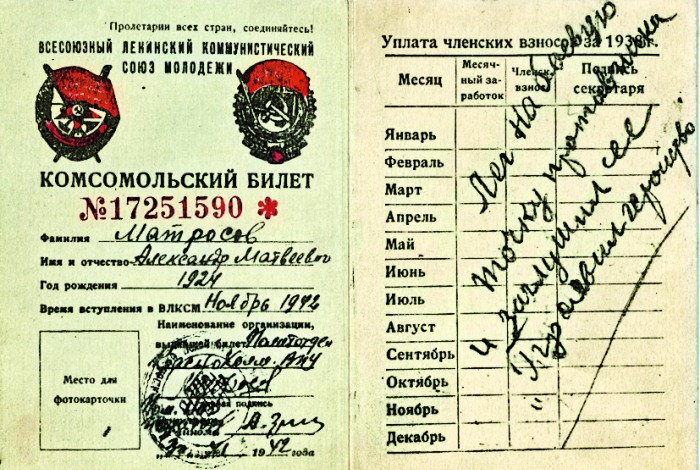 Пролетарии всех стран, соединяйтесь!
ВСЕСОЮЗНЫЙ ЛЕНИНСКИЙ КОММУНИСТИЧЕСКИЙ
СОЮЗ МОЛОДЕЖИ
КОМСОМОЛЬСКИЙ БИЛЕТ
№17251590 *
Фамилия Матросов
Имя и отчество Александр Матвеевич
Год рождения 1924
Время вступления в ВЛКСМ Ноябрь 1942
Наименование организации,
выдавшей билет Политотдел
Краснохолм.
Место для
фотокарточки
подпись
1942 года
Уплата членских взносов за 193 г.
Месяц
Месяч-
ный за-
работок
Членск.
взнос
Подпись
секретаря
Январь
Февраль
Март
Апрель
Май
Июнь
Июль
Август
Сентябрь
Октябрь
Ноябрь
Декабрь
Лег на боевую
точку противника
и заглушил ее
Проявил геройство